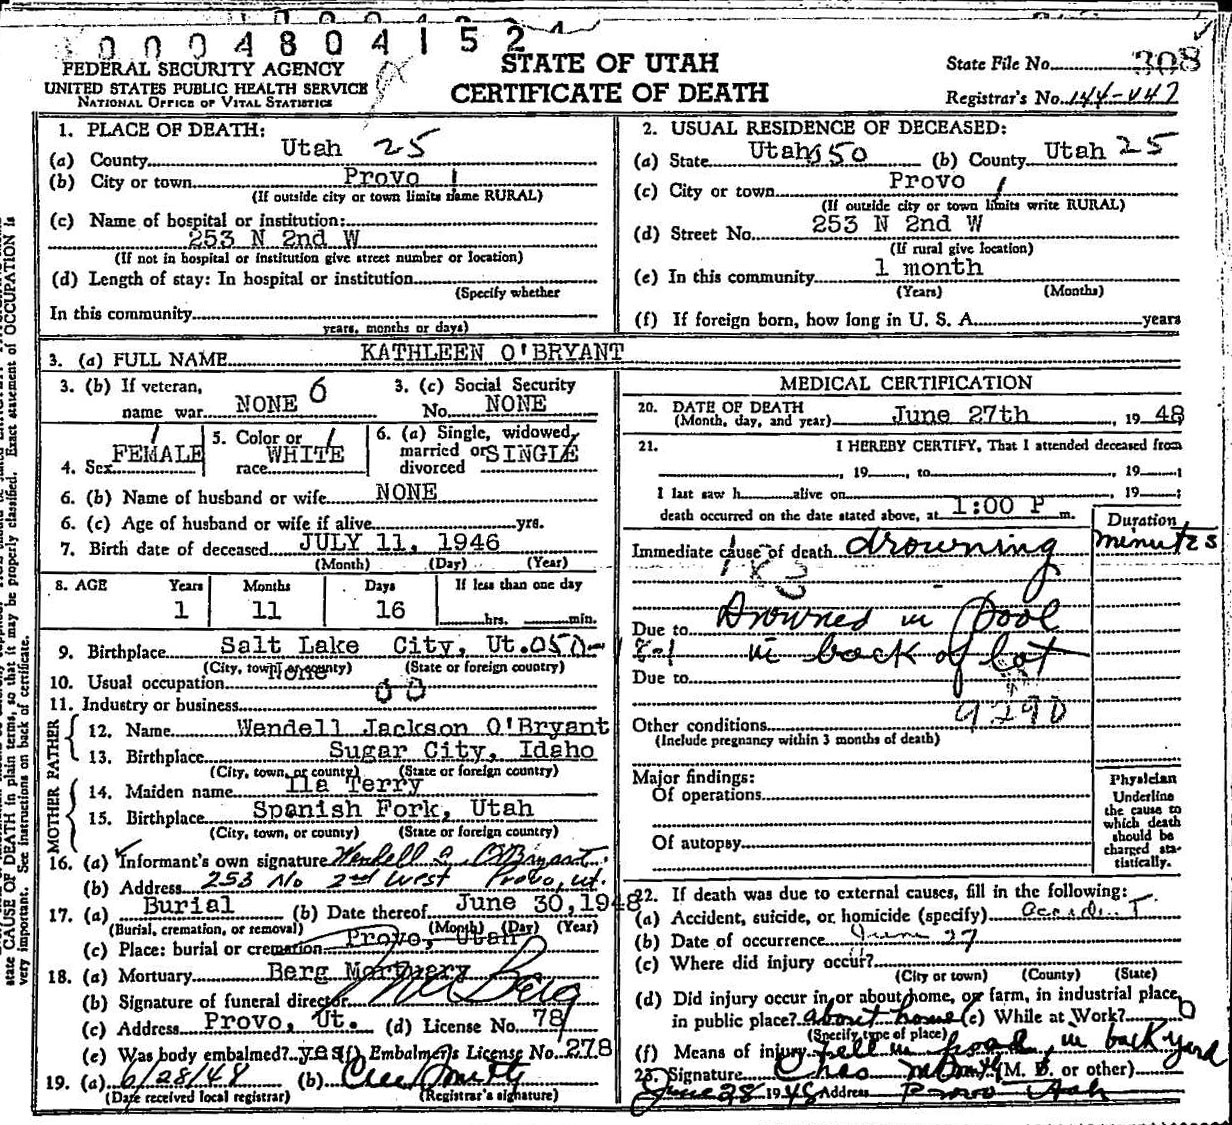 0004804152
FEDERAL SECURITY AGENCY
UNITED STATES PUBLIC HEALTH SERVICE
NATIONAL OFFICE OF VITAL STATISTICS
STATE OF UTAH
CERTIFICATE OF DEATH
State File No. 308
Registrar's No. 144-447
1. PLACE OF DEATH:
(a) County Utah 25
(b) City or town Provo 1
(If outside city or town limits name RURAL)
(c) Name of hospital or institution:
253 N 2nd W
(If not in hospital or institution give street number or location)
(d) Length of stay: In hospital or institution
(Specify whether
In this community
years, months or days)
2. USUAL RESIDENCE OF DECEASED:
(a) State Utah 550 (b) County Utah 25
(c) City or town Provo 1
(If outside city or town limits write RURAL)
(d) Street No. 253 N 2nd W
(If rural give location)
(e) In this community 1 month
(Years) (Months)
(f) If foreign born, how long in U. S. A. years
3. (a) FULL NAME KATHLEEN O'BRYANT
3. (b) If veteran, name war NONE 6
3. (c) Social Security No. NONE
4. Sex FEMALE 1
5. Color or race WHITE 1
6. (a) Single, widowed, married or divorced SINGLE
6. (b) Name of husband or wife NONE
6. (c) Age of husband or wife if alive yrs.
7. Birth date of deceased JULY 11, 1946
(Month) (Day) (Year)
8. AGE Years Months Days If less than one day
1 11 16 hrs. min.
9. Birthplace Salt Lake City, Ut. 050-
(City, town or county) (State or foreign country)
10. Usual occupation None
11. Industry or business 00
FATHER
12. Name Wendell Jackson O'Bryant
13. Birthplace Sugar City, Idaho
(City, town, or county) (State or foreign country)
MOTHER
14. Maiden name Ila Terry
15. Birthplace Spanish Fork, Utah
(City, town, or county) (State or foreign country)
16. (a) Informant's own signature Wendell O'Bryant
(b) Address 253 No 2nd West Provo, Ut.
17. (a) Burial (b) Date thereof June 30, 1948
(Burial, cremation, or removal) (Month) (Day) (Year)
(c) Place: burial or cremation Provo, Utah
18. (a) Mortuary Berg Mortuary
(b) Signature of funeral director Berg
(c) Address Provo, Ut. (d) License No. 78
(e) Was body embalmed? yes (f) Embalmer's License No. 278
19. (a) 6/28/48 (b)
(Date received local registrar) (Registrar's signature)
MEDICAL CERTIFICATION
20. DATE OF DEATH
(Month, day, and year) June 27th 1948
21. I HEREBY CERTIFY, That I attended deceased from
, 19 , to , 19 ;
I last saw h alive on , 19 ;
death occurred on the date stated above, at 1:00 P m.
Duration
Immediate cause of death drowning minutes
183
Due to Drowned in Pool
8-1 in back of lot
Due to
9290
Other conditions
(Include pregnancy within 3 months of death)
Major findings:
Of operations
Of autopsy
Physician
Underline
the cause to
which death
should be
charged sta-
tistically.
22. If death was due to external causes, fill in the following:
(a) Accident, suicide, or homicide (specify) accident
(b) Date of occurrence June 27
(c) Where did injury occur?
(City or town) (County) (State)
(d) Did injury occur in or about home, or farm, in industrial place,
in public place? about home (e) While at Work?
(Specify type of place)
(f) Means of injury fell in pool, in back yard
23. Signature Chas (M. D. or other)
June 28 1948 Address Provo Utah
state CAUSE OF DEATH in plain terms, so that it may be properly classified. Exact statement of OCCUPATION is
very important. See instructions on back of certificate.